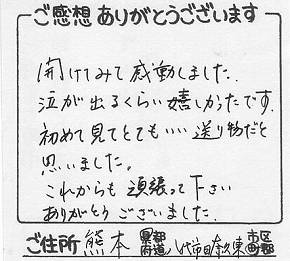 ご感想ありがとうございます
開けてみて感動しました。
泣が出るくらい嬉しかったです。
初めて見てとてもいい送り物だと
思いました。
これからも頑張って下さい
ありがとうございました。
ご住所 熊本 都道府県 市区町郡